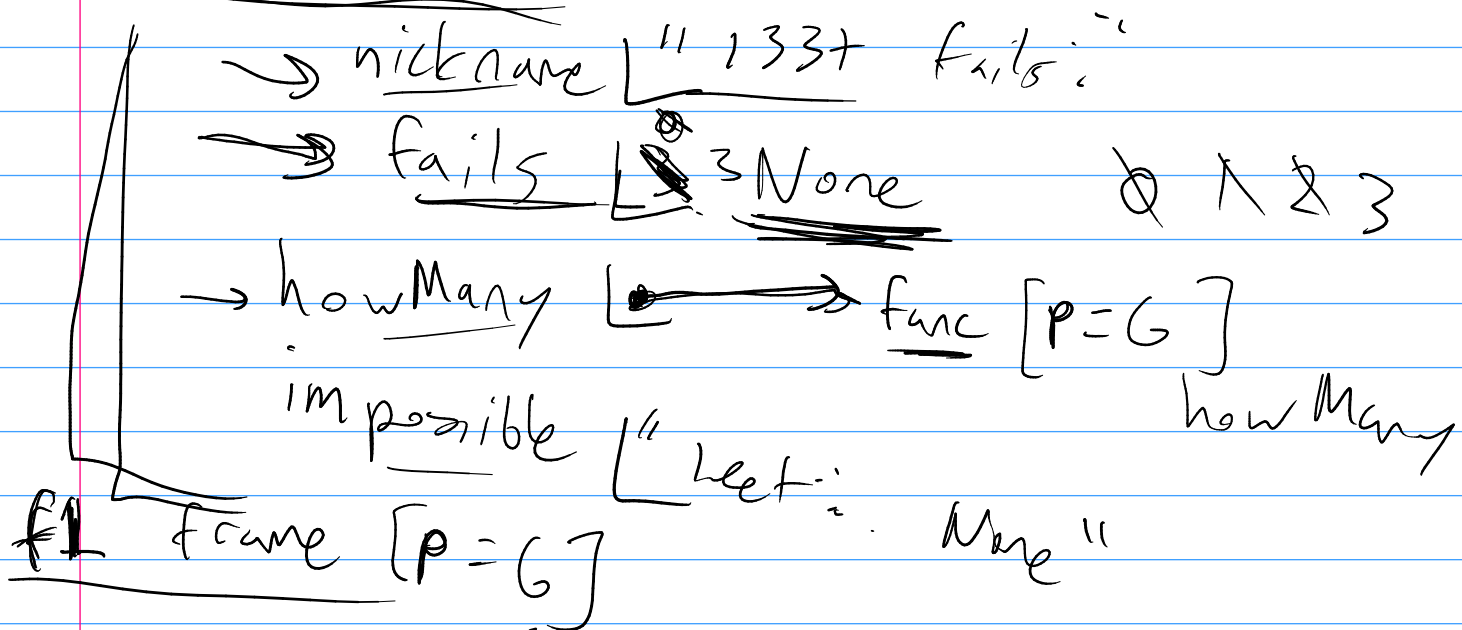 → nickname "1337 fails:"
→ fails 3 None 0 1 2 3
→ howMany → func [p=G]
howMany
impossible "Leet:
None"
f1 frame [p=G]